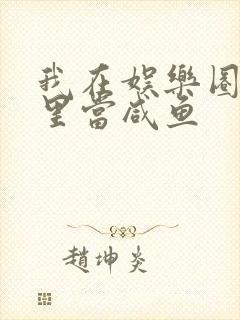 我在娱樂圈
里當咸鱼
趙坤炎